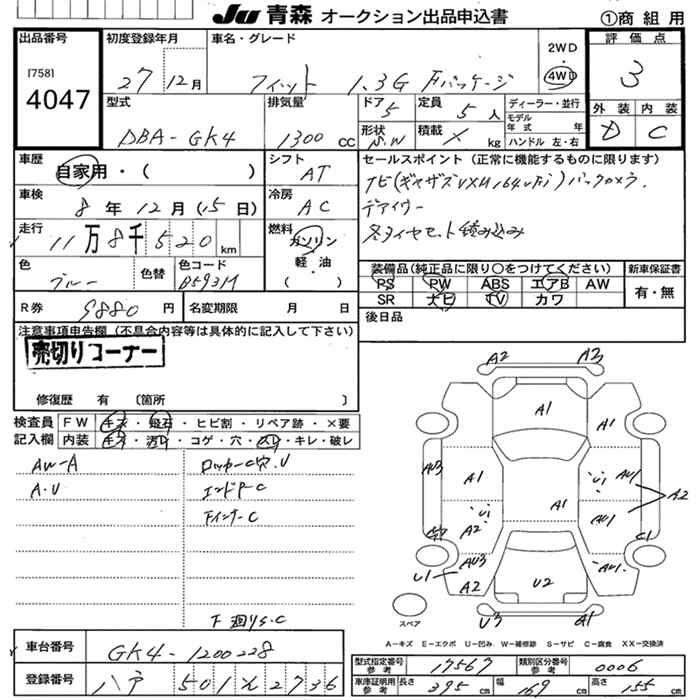 JU 青森 オークション出品申込書 ①商 組 用
出品番号 初度登録年月 車名・グレード 2WD 評 価 点
[758] 27 12 月 フィット 1.3G Fパッケージ 4WD 3
4047 型式 排気量 ドア 定員 ディーラー・並行 外 装 内 装
DBA-GK4 1300 CC 5 5 人 モデル年式 年 D C
形状 積載 ハンドル 左・右
S.W × kg
車歴 シフト セールスポイント (正常に機能するものに限ります)
自家用・( ) AT ナビ(ギャザズVXM164VFi)バックカメラ.
車検 冷房 デアイサー
8 年 12 月 (15 日) AC 冬タイヤセット積み込み
走行 燃料
11 万 8 千 520 km ガソリン
色 色替 色コード 軽・油 装備品(純正品に限り○をつけてください) 新車保証書
ブルー B593M ( ) PS PW ABS エアB AW 有・無
R券 9880 円 名変期限 月 日 SR ナビ TV カワ
注意事項申告欄 (不具合内容等は具体的に記入して下さい) 後日品
売切りコーナー
修復歴 有 (箇所 )
検査員 FW キズ・飛石・ヒビ割・リペア跡・×要
記入欄 内装 キズ・汚レ・コゲ・穴・スレ・キレ・破レ
AW-A ロッカーC穴.U
A.U エンドPC
FインナーC
下廻りS.C
A2 A3
A1
A1
AU3 A1 U1 AU1
A2
U1 A1 AU1
A2
C1
AU3 AU1
U1 A2 U2
U3 A1
スペア
A-キズ E-エクボ U-凹み W-補修跡 S-サビ C-腐食 XX-交換済
車台番号 GK4-1200228 型式指定番号 参考 17567 類別区分番号 参考 0006
登録番号 八戸 501 え 2736 車庫証明用 参考 長さ 395 cm 幅 169 cm 高さ 155 cm